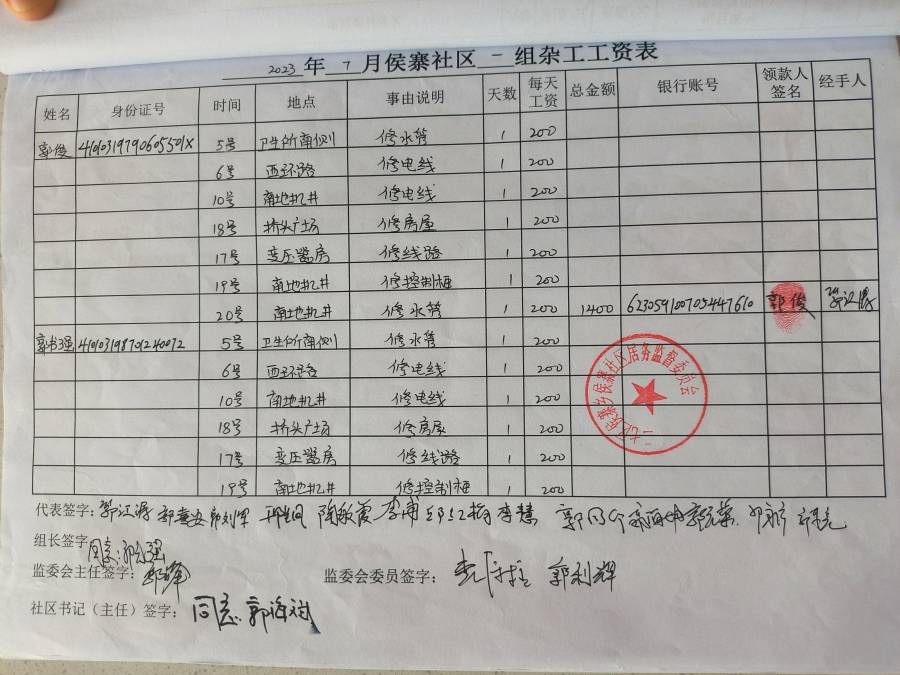 2023 年 7 月侯寨社区 一 组杂工工资表
姓名 身份证号 时间 地点 事由说明 天数 每天工资 总金额 银行账号 领款人签名 经手人
郭俊 41010319790605501X 5号 卫生所南侧 修水管 1 200
6号 西环路 修电线 1 200
10号 南地机井 修电线 1 200
18号 桥头广场 修房屋 1 200
17号 变压器房 修线路 1 200
19号 南地机井 修控制柜 1 200
20号 南地机井 修水管 1 200 1400 623059100705447610 郭俊
郭书强 410103198701240072 5号 卫生所南侧 修水管 1 200
6号 西环路 修电线 1 200
10号 南地机井 修电线 1 200
18号 桥头广场 修房屋 1 200
17号 变压器房 修线路 1 200
19号 南地机井 修控制柜 1 200
二七区侯寨乡侯寨社区居务监督委员会
代表签字: 陶敏霞 李慧
组长签字: 同意
监委会主任签字:
监委会委员签字: 郭利辉
社区书记（主任）签字: 同意 郭海斌